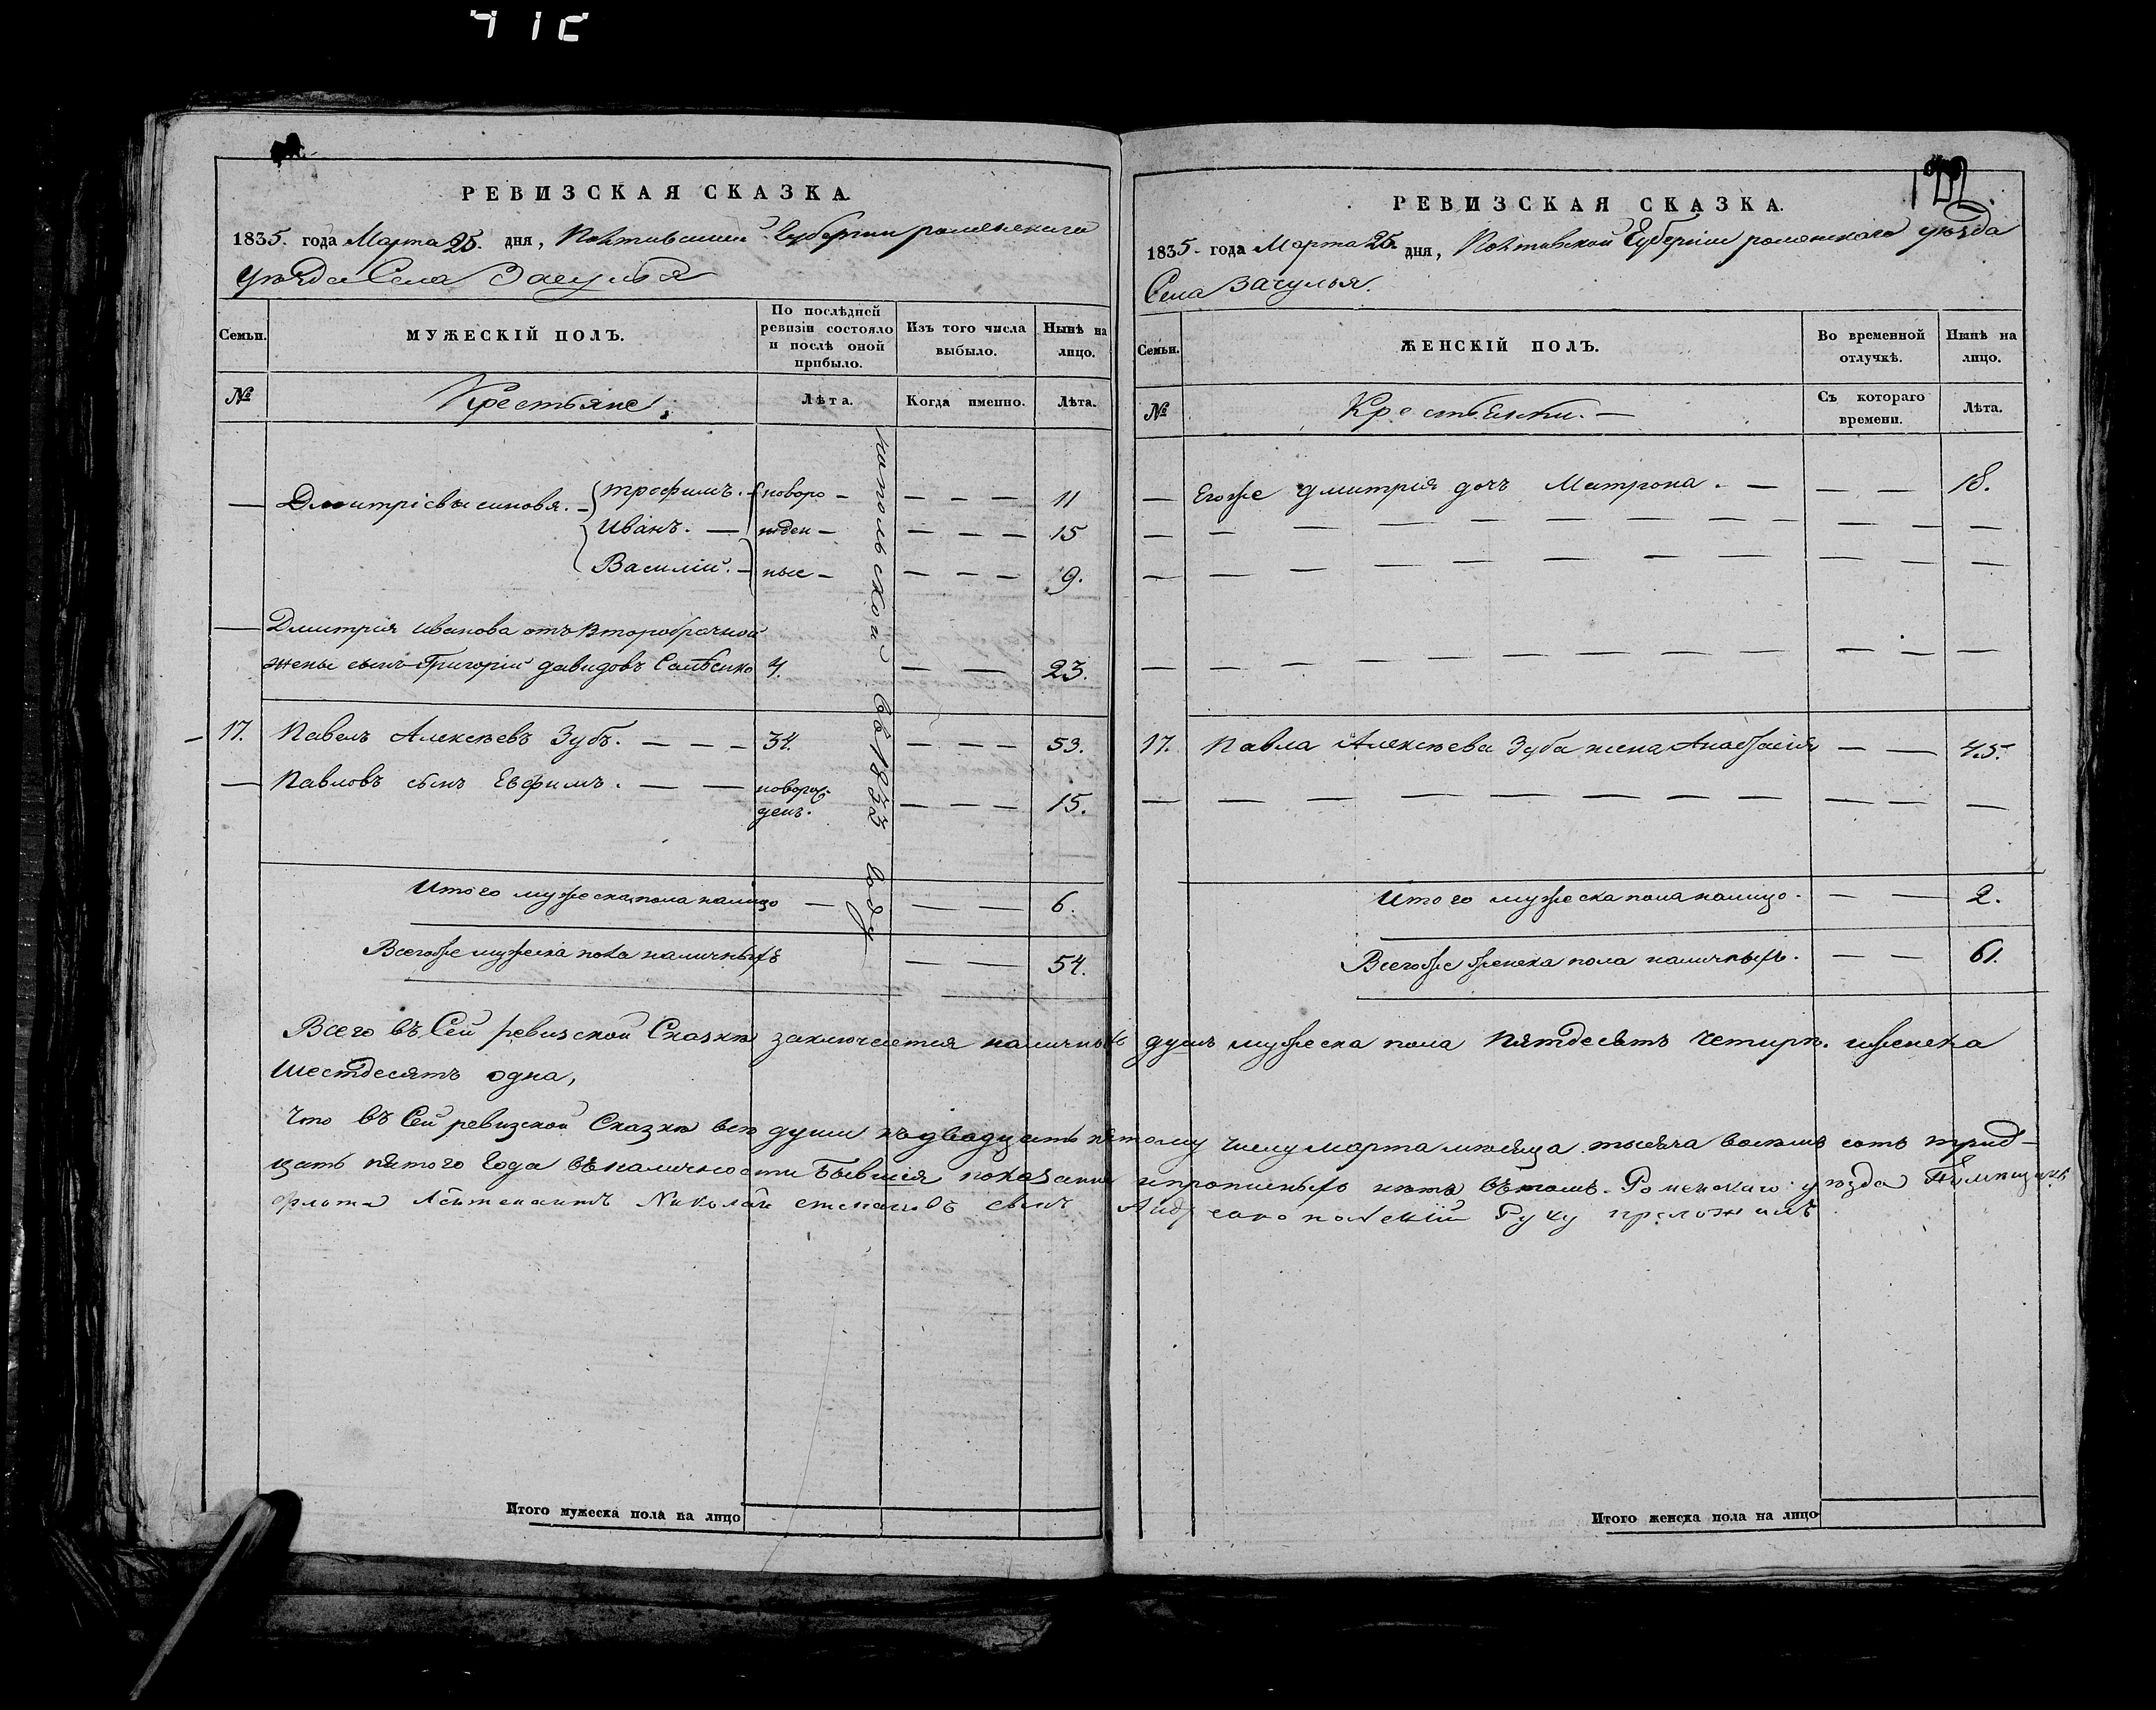 РЕВИЗСКАЯ СКАЗКА.
1835. года Марта 25. дня, Полтавской Губернии роменскаго
уѣзда Села Засулья
Семьи. МУЖЕСКІЙ ПОЛЪ. По послѣдней ревизіи состояло и послѣ оной прибыло. Изъ того числа выбыло. Нынѣ на лицо.
№ Крестьяне. Лѣта. Когда именно. Лѣта.
— Дмитріевы синовя. — трофимъ. — новоро — — — — 11
Иванъ. — жден — — — — 15
Василій. — ные — — — — 9.
— Дмитрія иванова отъ второбрачной
жены сынъ Григорій давидовъ 4. — — 23.
17. Павелъ Алексѣевъ Зубъ. — — — 34. — — — 53.
— Павловъ сынъ Евфимъ. — — новорож
денъ. — — — 15.
въ 1833 году
Итого мужеска пола налицо — — — 6.
Всегоже мужеска пола наличныхъ — — 54.
РЕВИЗСКАЯ СКАЗКА.
1835. года Марта 25. дня, Полтавской Губерніи роменскаго уѣзда
Села Засулья.
Семьи. ЖЕНСКІЙ ПОЛЪ. Во временной отлучкѣ. Нынѣ на лицо.
№ Крестьянки. — Съ котораго времени. Лѣта.
— Егоже дмитрія дочь Матрона. — — — 18.
17. Павла Алексѣева Зуба жена Анастасія — — 45.
Итого мужеска пола налицо. — — 2.
Всегоже женска пола наличныхъ. — — 61.
Всего въ Сей ревизской Сказкѣ заключается наличныхъ душъ мужеска пола пятдесятъ четыре. иженска
шестдесятъ одна,
Что въ Сей ревизской Сказкѣ всѣ души къ двадцать пятому числу марта мѣсяца тысяча восемь сотъ трид-
цать пятого Года въ наличности Бывшія показанны ипрописныхъ нѣтъ въ томъ. Роменскаго уѣзда Помѣщикъ
флота Лейтенантъ Николай степановъ сынъ руку приложилъ
Итого мужеска пола на лицо
Итого женска пола на лицо